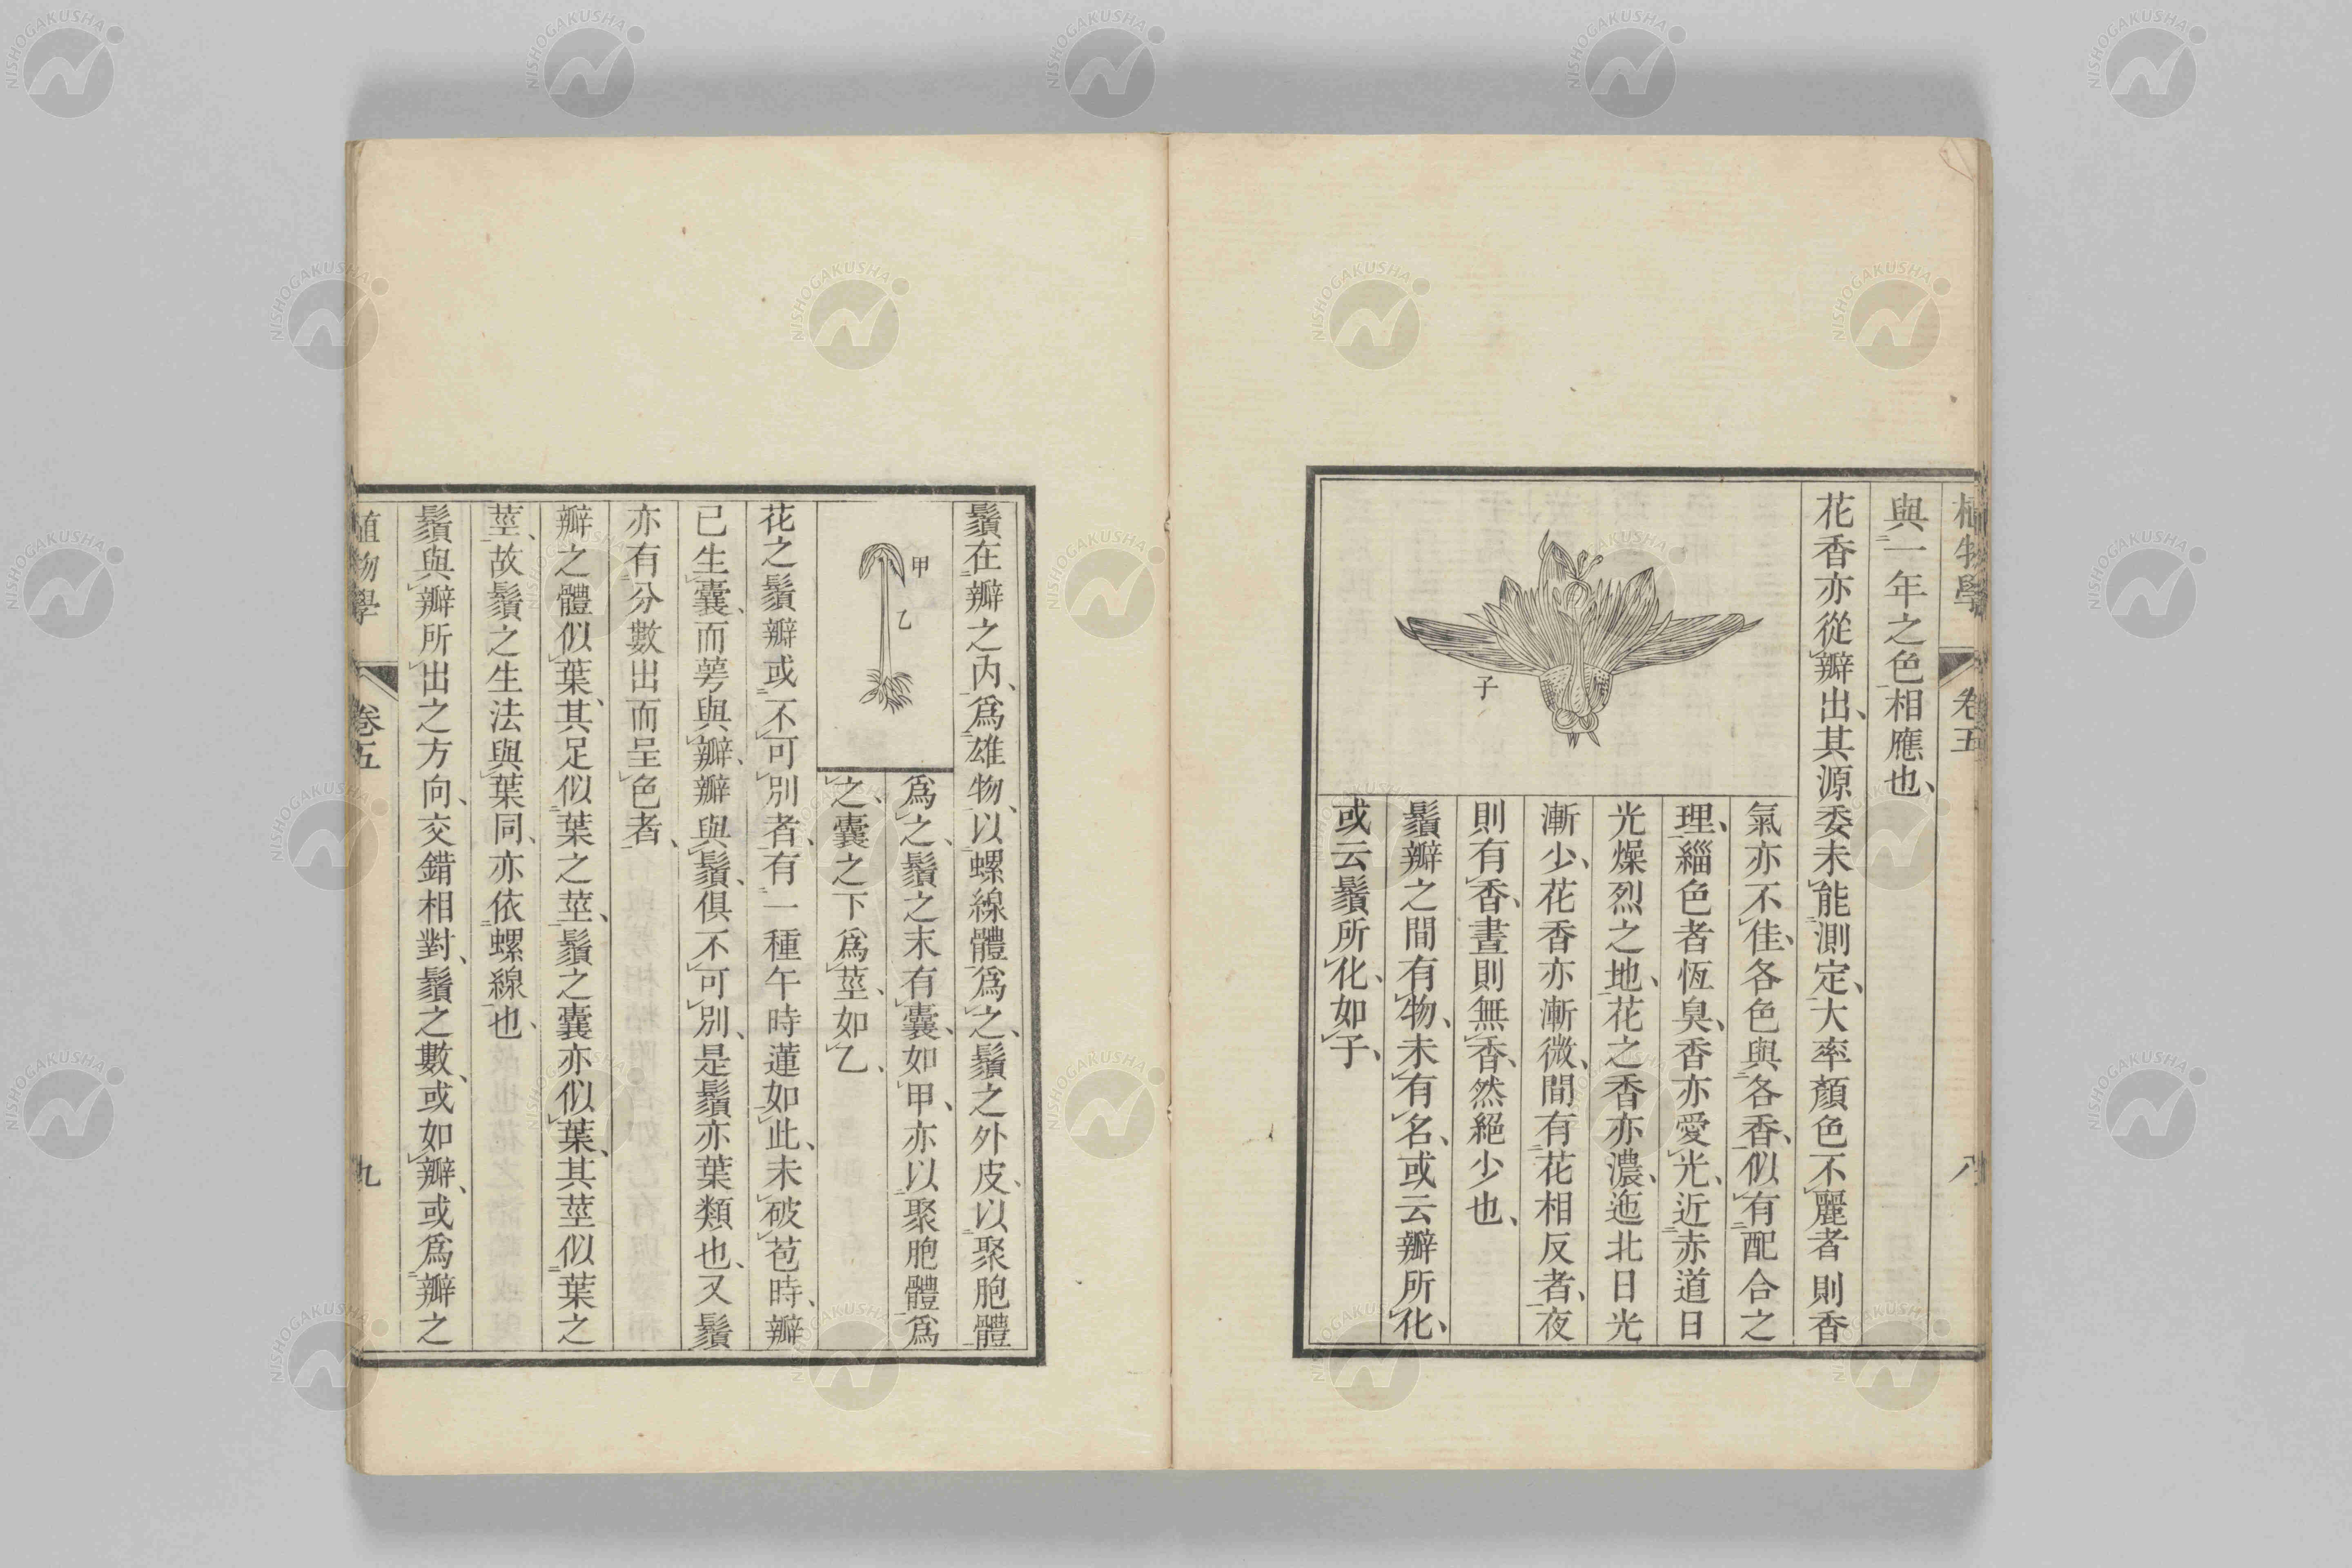 植物學 卷五 八
與一年之色相應也、
花香亦從瓣出、其源委未能測定、大率顏色不麗者則香
氣亦不佳、各色與各香、似有配合之
理、緇色者恆臭、香亦愛光、近赤道日
光燥烈之地、花之香亦濃、迤北日光
漸少、花香亦漸微、間有花相反者、夜
則有香、晝則無香、然絕少也、
鬚瓣之間有物、未有名、或云瓣所化、
或云鬚所化、如子、
子
鬚在瓣之內、爲雄物、以螺線體爲之、鬚之外皮、以聚胞體
爲之、鬚之末有囊、如甲、亦以聚胞體爲
之、囊之下爲莖、如乙、
甲
乙
花之鬚瓣或不可別者、有一種午時蓮如此、未破苞時、瓣
已生囊、而萼與瓣、瓣與鬚、俱不可別、是鬚亦葉類也、又鬚
亦有分數出而呈色者、
瓣之體似葉、其足似葉之莖、鬚之囊亦似葉、其莖似葉之
莖、故鬚之生法與葉同、亦依螺線也、
鬚與瓣所出之方向、交錯相對、鬚之數、或如瓣、或爲瓣之
植物學 卷五 九
NISHOGAKUSHA